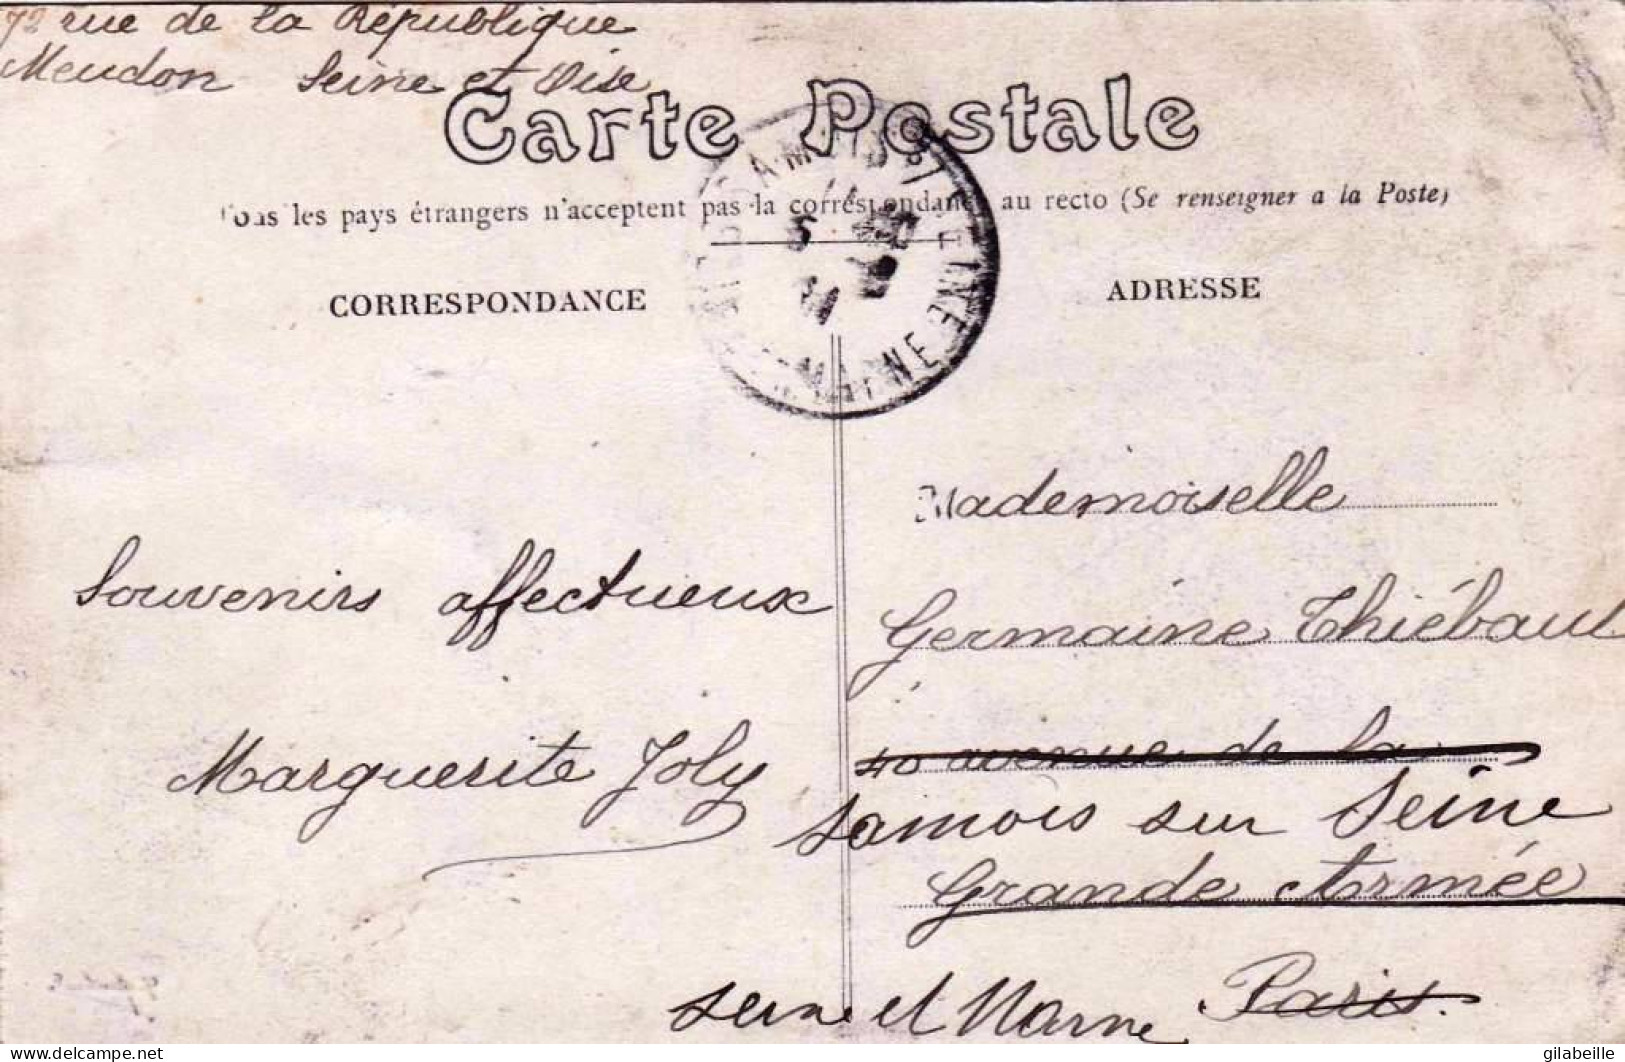 72 rue de la République
Meudon Seine et Oise
Carte Postale
Tous les pays étrangers n'acceptent pas la correspondance au recto (Se renseigner a la Poste)
CORRESPONDANCE
ADRESSE
SEINE
MARNE
Souvenirs affectueux
Marguerite Joly
Mademoiselle
Germaine Thiébaut
40 avenue de la
Samois sur Seine
Grande Armée
Paris.
Seine et Marne
delcampe.net
gilabeille